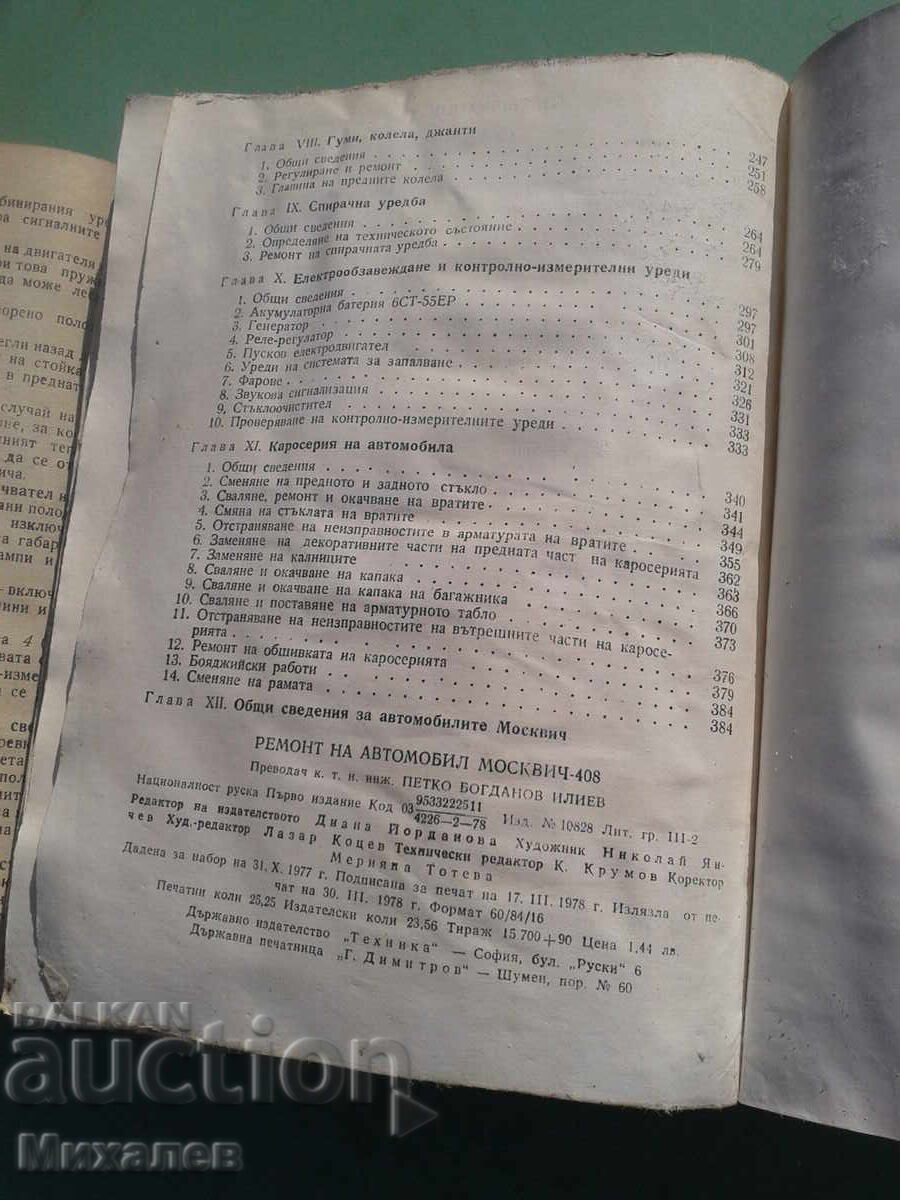 бинирания уре
ра сигналните
на двигателя
ри това пруж
да може лес
ворено поло
егли назад
на стойка
в преднат
случай на
не, за ко
ният теп
да се от
ича.
чвател н
ани поло
изключ
а габар
ампи и
— включ
ини и
а 4
вата с
-изме
и се
Глава VIII. Гуми, колела, джанти
1. Общи сведения 247
2. Регулиране и ремонт 251
3. Главина на предните колела 258
Глава IX. Спирачна уредба
1. Общи сведения 264
2. Определяне на техническото състояние 264
3. Ремонт на спирачната уредба 279
Глава X. Електрообзавеждане и контролно-измерителни уреди
1. Общи сведения 297
2. Акумулаторна батерия 6СТ-55ЕР 297
3. Генератор 301
4. Реле-регулатор 308
5. Пусков електродвигател 312
6. Уреди на системата за запалване 321
7. Фарове 326
8. Звукова сигнализация 331
9. Стъклоочистител 333
10. Проверяване на контролно-измерителните уреди 333
Глава XI. Каросерия на автомобила
1. Общи сведения 340
2. Сменяне на предното и задното стъкло 341
3. Сваляне, ремонт и окачване на вратите 344
4. Смяна на стъклата на вратите 349
5. Отстраняване на неизправностите в арматурата на вратите 355
6. Заменяне на декоративните части на предната част на каросерията 362
7. Заменяне на калниците 363
8. Сваляне и окачване на капака 366
9. Сваляне и окачване на капака на багажника 370
10. Сваляне и поставяне на арматурното табло 373
11. Отстраняване на неизправностите на вътрешните части на каросе-
рията 376
12. Ремонт на обшивката на каросерията 379
13. Бояджийски работи 384
14. Сменяне на рамата 384
Глава XII. Общи сведения за автомобилите Москвич
РЕМОНТ НА АВТОМОБИЛ МОСКВИЧ-408
Преводач к. т. н. инж. ПЕТКО БОГДАНОВ ИЛИЕВ
Националност руска Първо издание Код 03 9533222511
4226—2—78 Изд. № 10828 Лит. гр. III-2
Редактор на издателството Диана Йорданова Художник Николай Ян-
чев Худ.-редактор Лазар Коцев Технически редактор К. Крумов Коректор
Мерияна Тотева
Дадена за набор на 31. X. 1977 г. Подписана за печат на 17. III. 1978 г. Излязла от пе-
чат на 30. III. 1978 г. Формат 60/84/16
Печатни коли 25,25 Издателски коли 23,56 Тираж 15 700+90 Цена 1,44 лв.
Държавно издателство „Техника“ — София, бул. „Руски“ 6
Държавна печатница „Г. Димитров“ — Шумен, пор. № 60
BALKAN
auction
Михалев